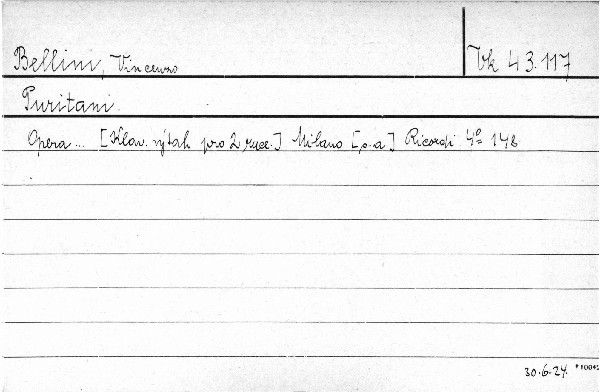 Bellini, Vincenzo Vk 43.117
Puritani.
Opera... [Klav. výtah pro 2 ruce.] Milano [s.a.] Ricordi. 4° 148.
30.6.24.